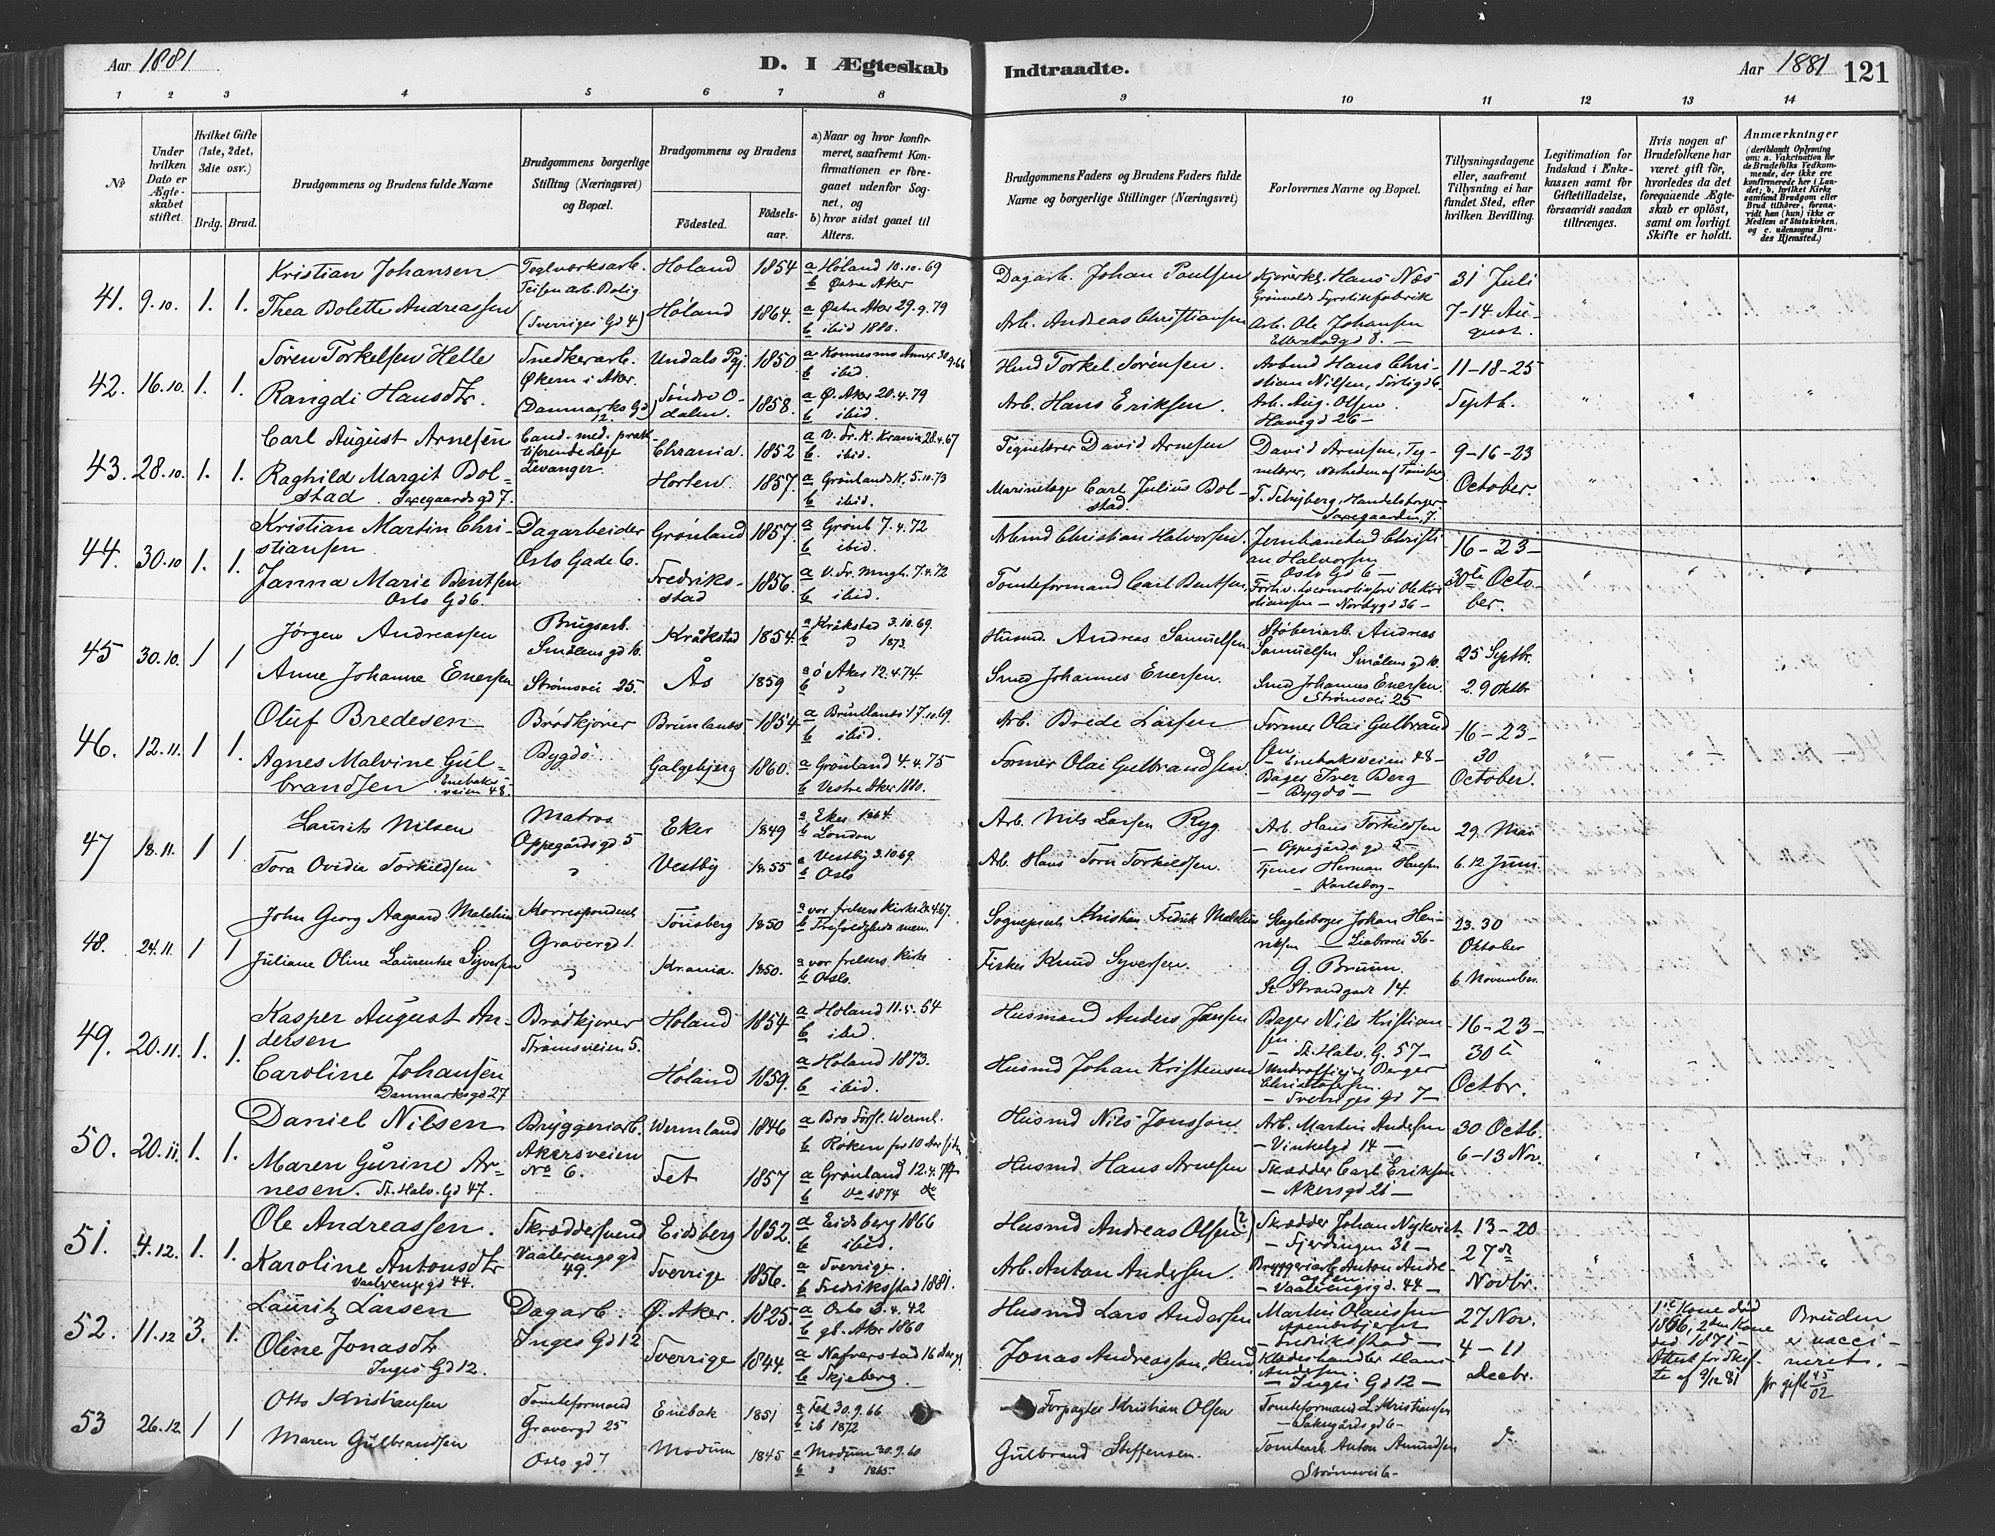 Aar 1881
D. I Ægteskab Indtraadte.
Aar 1881 121
1 2 3 4 5 6 7 8 9 10 11 12 13 14
№
Under hvilken Dato er Ægteskabet stiftet.
Hvilket Gifte (1ste, 2det, 3die osv.)
Brdg. Brud.
Brudgommens og Brudens fulde Navne
Brudgommens borgerlige Stilling (Næringsvei) og Bopæl.
Brudgommens og Brudens
Fødested. Fødselsaar.
a) Naar og hvor konfirmeret, saafremt Konfirmationen er foregaaet udenfor Sognet, og
b) hvor sidst gaaet til Alters.
Brudgommens Faders og Brudens Faders fulde Navne og borgerlige Stillinger (Næringsvei)
Forlovernes Navne og Bopæl.
Tillysningsdagene eller, saafremt Tillysning ei har fundet Sted, efter hvilken Bevilling.
Legitimation for Indskud i Enkekassen samt for Giftetilladelse, forsaavidt saadan tiltrænges.
Hvis nogen af Brudefolkene har været gift før, hvorledes da det foregaaende Ægteskab er opløst, samt om lovligt Skifte er holdt.
Anmærkninger (deriblandt Oplysning om: a. Vakcination for de Brudefolks Vedkommende, der ikke ere konfirmerede her i Landet; b. hvilket Kirkesamfund Brudgom eller Brud tilhører, forsaavidt han (hun) ikke er Medlem af Statskirken, og c. udensogns Brudes Hjemsted.)
41. 9.10. 1. 1.
Kristian Johansen
Thea Bolette Andreassen
Teglværksarb.
Teisen arb. Bolig
(Sverriges Gd 4)
Høland 1854
Høland 1864.
a Høland 10.10.69
b Østre Aker
a Østre Aker 29.9.79
b ibid 1880.
Dagarb. Johan Paulsen
Arb. Andreas Christiansen
Hans Næs
Grønvolds Fyrstikfabrik
Arb. Ole Johansen
31 Juli
7-14 August.
42. 16.10. 1. 1.
Søren Torkelsen Helle
Rangdi Hansdtr.
Snedkerarb.
Økern i Aker.
(Danmarks Gd 12.)
Undals Pgj. 1850
Søndre Odalen. 1858.
a Konnesmo Annex 30.9.66
b ibid.
a Ø. Aker 20.4.79
b ibid.
Husmd Torkel Sørensen.
Arb. Hans Eriksen.
Arbmd Hans Christian Nilsen,
Arb. Aug. Olsen.
Havegd 26-
11-18-25
Septb.
43. 28.10. 1. 1.
Carl August Arnesen
Raghild Margit Bolstad. Saxegaardsgd 7.
Cand. med. praktiserende Læge
Levanger.
Chrania. 1852
Horten. 1857.
a V. Fr. K. Krania 28.4.67
b. ibid.
a Grønlands K. 5.10.73
b ibid.
Tegnelærer David Arnesen
Marinelæge Carl Julius Bolstad.
David Arnesen, Tegnelærer, Nærheden af Tønsberg
Saxegaarden 7.
9-16-23
October.
44. 30.10 1. 1.
Kristian Martin Christiansen
Janna Marie Bentsen
Oslo Gd 6.
Dagarbeider
Oslo Gade 6.
Grønland 1857.
Fredriksstad 1856.
a Grønl 7.4.72
b ibid.
a V. Fr. Mngh. 7.4.72
b ibid.
Arbmd Christian Halvorsen.
Tomteformand Carl Bentsen.
Jernbanebud Christian Halvorsen
- Oslo Gd 6 -
Ole Kristiansen - Norbygd 36 -
16-23-
30te October.
45 30.10. 1 1
Jørgen Andreassen
Anne Johanne Enersen
Brugsarb.
Smålens gd 16.
Strømsvei 25.
Kråkstad 1854.
Ås 1859
a Kråkstad 3.10.69.
b " 1873.
a Ø Aker 12.4.74
b "
Husmd. Andreas Samuelsen.
Smed Johannes Enersen.
Støberiarb. Andreas Samuelsen Smålensgd 16.
Smed Johannes Enersen.
Strømsvei 25
25 Septbr.
2. 9 Oktbr
46. 12.11. 1 1.
Oluf Bredesen
Agnes Malvine Gulbrandsen Enebaksveien 48.
Brødkjører
Bygdø
Brunlanæs 1854
Galgebjerg 1860.
a Brunlanæs 17.10.69.
b ibid.
a Grønland 4.4.75
b Vestre Aker 1880.
Arb. Brede Larsen
Former Olai Gulbrandsen.
Former Olai Gulbrandsen
- Enebaksveien 48 -
Bager Iver Berg
- Bygdø -
16-23-
30
October.
47 18.11. 1 1
Laurits Nilsen
Tora Ovidia Torkildsen
Matros
Oppegårdsgd 5
"
Eker 1849
Vestby 1855
a Eker 1864.
b London
a Vestby 3.10.69.
b Oslo
Arb. Nils Larsen Ryg.
Arb Hans Torkildsen.
Arb. Hans Torkildsen
- Oppegårdsgd 5 -
Herman Hansen
- Karlsborg -
29. Mai
6.12 Juni
48. 24.11. 1 1
John Georg Aagaard
Juliane Oline Laurentse Syversen
Korrespondent
Gravergd 1.
"
Tønsberg 1850
Krania. 1850.
a vor frelsers Kirke 28.4.67.
b Trefoldigheds men.
a vor frelsers Kirke
b Oslo.
Sogneprest Kristian Fredrik
Fisker Knud Syversen.
Johan Henriksen - Liabrovei 56-
G. Bruun.
St. Strandgade 14.
23. 30
Oktober
6 November.
49. 20.11. 1. 1.
Kasper August Andersen
Caroline Johansen
Danmarksgd 27
Brødkjører
Strømsveien 5.
Høland 1854
Høland 1859.
a Høland 11.5.54
b ibid.
a Høland 1873.
b ibid.
Husmand Anders Jansen
Husmd Johan Kristensen
Bager Nils Kristiansen.
- St. Halv. G. 57 -
Underofficier Birger Christofersen.
- Sverriges Gd 7 -
16-23-
30te
Octbr.
50. 20.11. 1. 1.
Daniel Nilsen
Maren Gurine Arnesen. St. Halv. Gd 47.
Bryggeriarb.
Akersveien
No 6.
Wermland 1846
Fet 1857
a Bro Førs. Werml.
b Røken for 10 Aar siden
a Grønland 12.4.74
b do 1874
Husmd Nils Jonsson.
Husmd. Hans Arnesen
Arb. Martin Andersen
- Vinkelgd 14 -
Skrædder Carl Eriksen
- Akersgd 21 -
30 Octb.
6-13 Nov.
51. 4.12. 1. 1.
Ole Andreassen.
Karoline Antonsdtr
Vaalerengsgd 44.
Skræddersvend
Vaalerengsgd 49.
Eidsberg 1852.
Sverrige 1856.
a Eidsberg 1866
b ibid.
a Sverrige.
b Fredriksstad 1881.
Husmd Andreas Olsen (?)
Arb. Anton Andersen.
Skrædder Johan Nykvist.
- Fjerdingen 31 -
Bryggeriarb. Anton Andreassen
- Vaalerengsgd. 44 -
13-20
27de
Novbr.
52. 11.12 3. 1.
Lauritz Larsen
Oline Jonasdtr
Inges Gd 12.
Dagarb.
Inges Gd 12
Ø. Aker. 1825.
Sverrige 1844.
a Oslo 3.4.42
b gl. Aker 1860
a Nafverstad
b Skjeberg.
Husmd Lars Andersen
Jonas Andreassen, Husmd.
Martin Olaussen
- Fredriksstad -
Klædeshandler Hans Andersen.
- Inges Gd 12 -
27 Nov.
4-11
Decbr.
1ste Kone død 1866, 2den Kone død 1871 -
Attest for Skifte af 9/12 81
Bruden
er vaccineret. -
53 26.12. 1 1
Otto Kristiansen
Maren Gulbrandsen
Tomteformand
Gravergd 25
Oslo gd 7
Enebak 1851
Modum 1845
a Fet 30.9.66
b ib 1872
a Modum 30.9.60
b " 1865.
Forpagter Kristian Olsen
Gulbrand Steffensen.
Tomteformand L. Kristiansen
- Saksegårdsgd 6 -
Tomtearb. Anton Amundsen
Strømsvei 6-